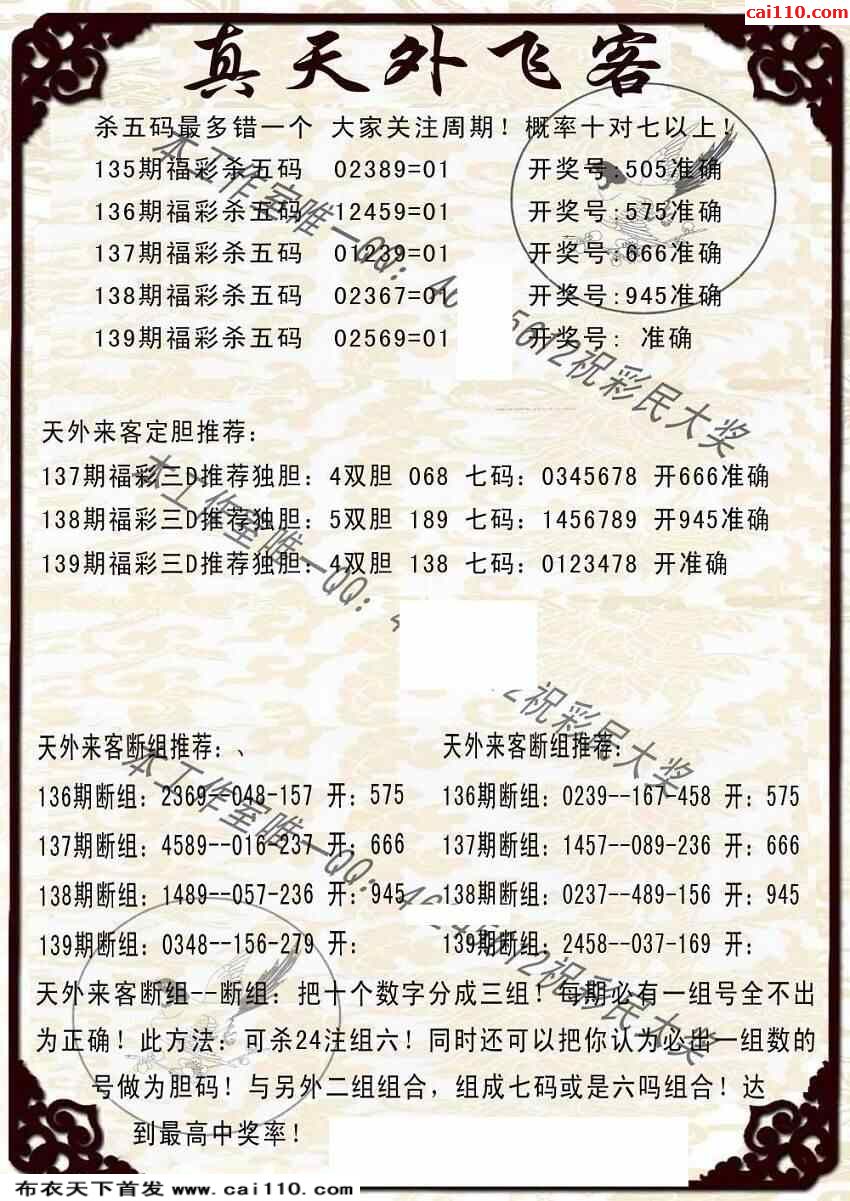 cai110.com
真天外飞客
杀五码最多错一个 大家关注周期！概率十对七以上！
135期福彩杀五码 02389=01 开奖号:505准确
136期福彩杀五码 12459=01 开奖号:575准确
137期福彩杀五码 01239=01 开奖号:666准确
138期福彩杀五码 02367=01 开奖号:945准确
139期福彩杀五码 02569=01 开奖号: 准确
天外来客定胆推荐：
137期福彩三D推荐独胆：4双胆 068 七码：0345678 开666准确
138期福彩三D推荐独胆：5双胆 189 七码：1456789 开945准确
139期福彩三D推荐独胆：4双胆 138 七码：0123478 开准确
天外来客断组推荐：、 天外来客断组推荐：
136期断组：2369--048-157 开：575 136期断组：0239--167-458 开：575
137期断组：4589--016-237 开：666 137期断组：1457--089-236 开：666
138期断组：1489--057-236 开：945 138期断组：0237--489-156 开：945
139期断组：0348--156-279 开： 139期断组：2458--037-169 开：
天外来客断组--断组：把十个数字分成三组！每期必有一组号全不出
为正确！此方法：可杀24注组六！同时还可以把你认为必出一组数的
号做为胆码！与另外二组组合，组成七码或是六吗组合！达
到最高中奖率！
本工作室唯一QQ：4 5612祝彩民大奖
本工作室唯一QQ： 2祝彩民大奖
本工作室唯一QQ：4 612祝彩民大奖
布衣天下首发 www.cai110.com